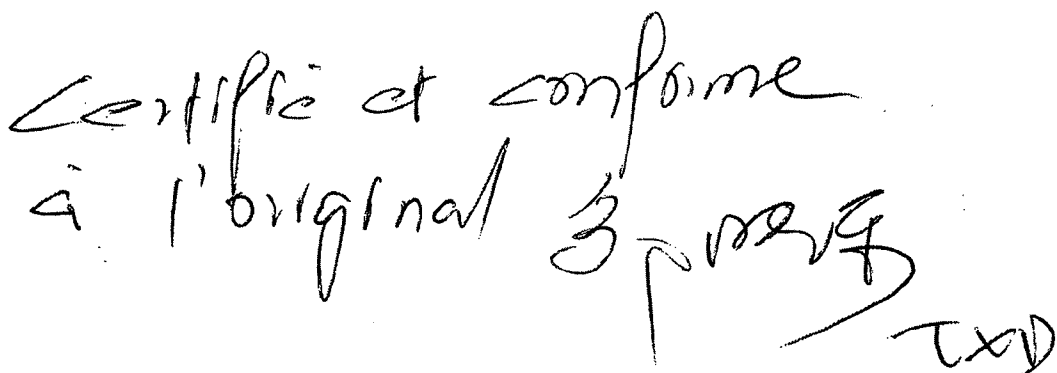 certifié et conforme
à l'original 3 pages
TXD